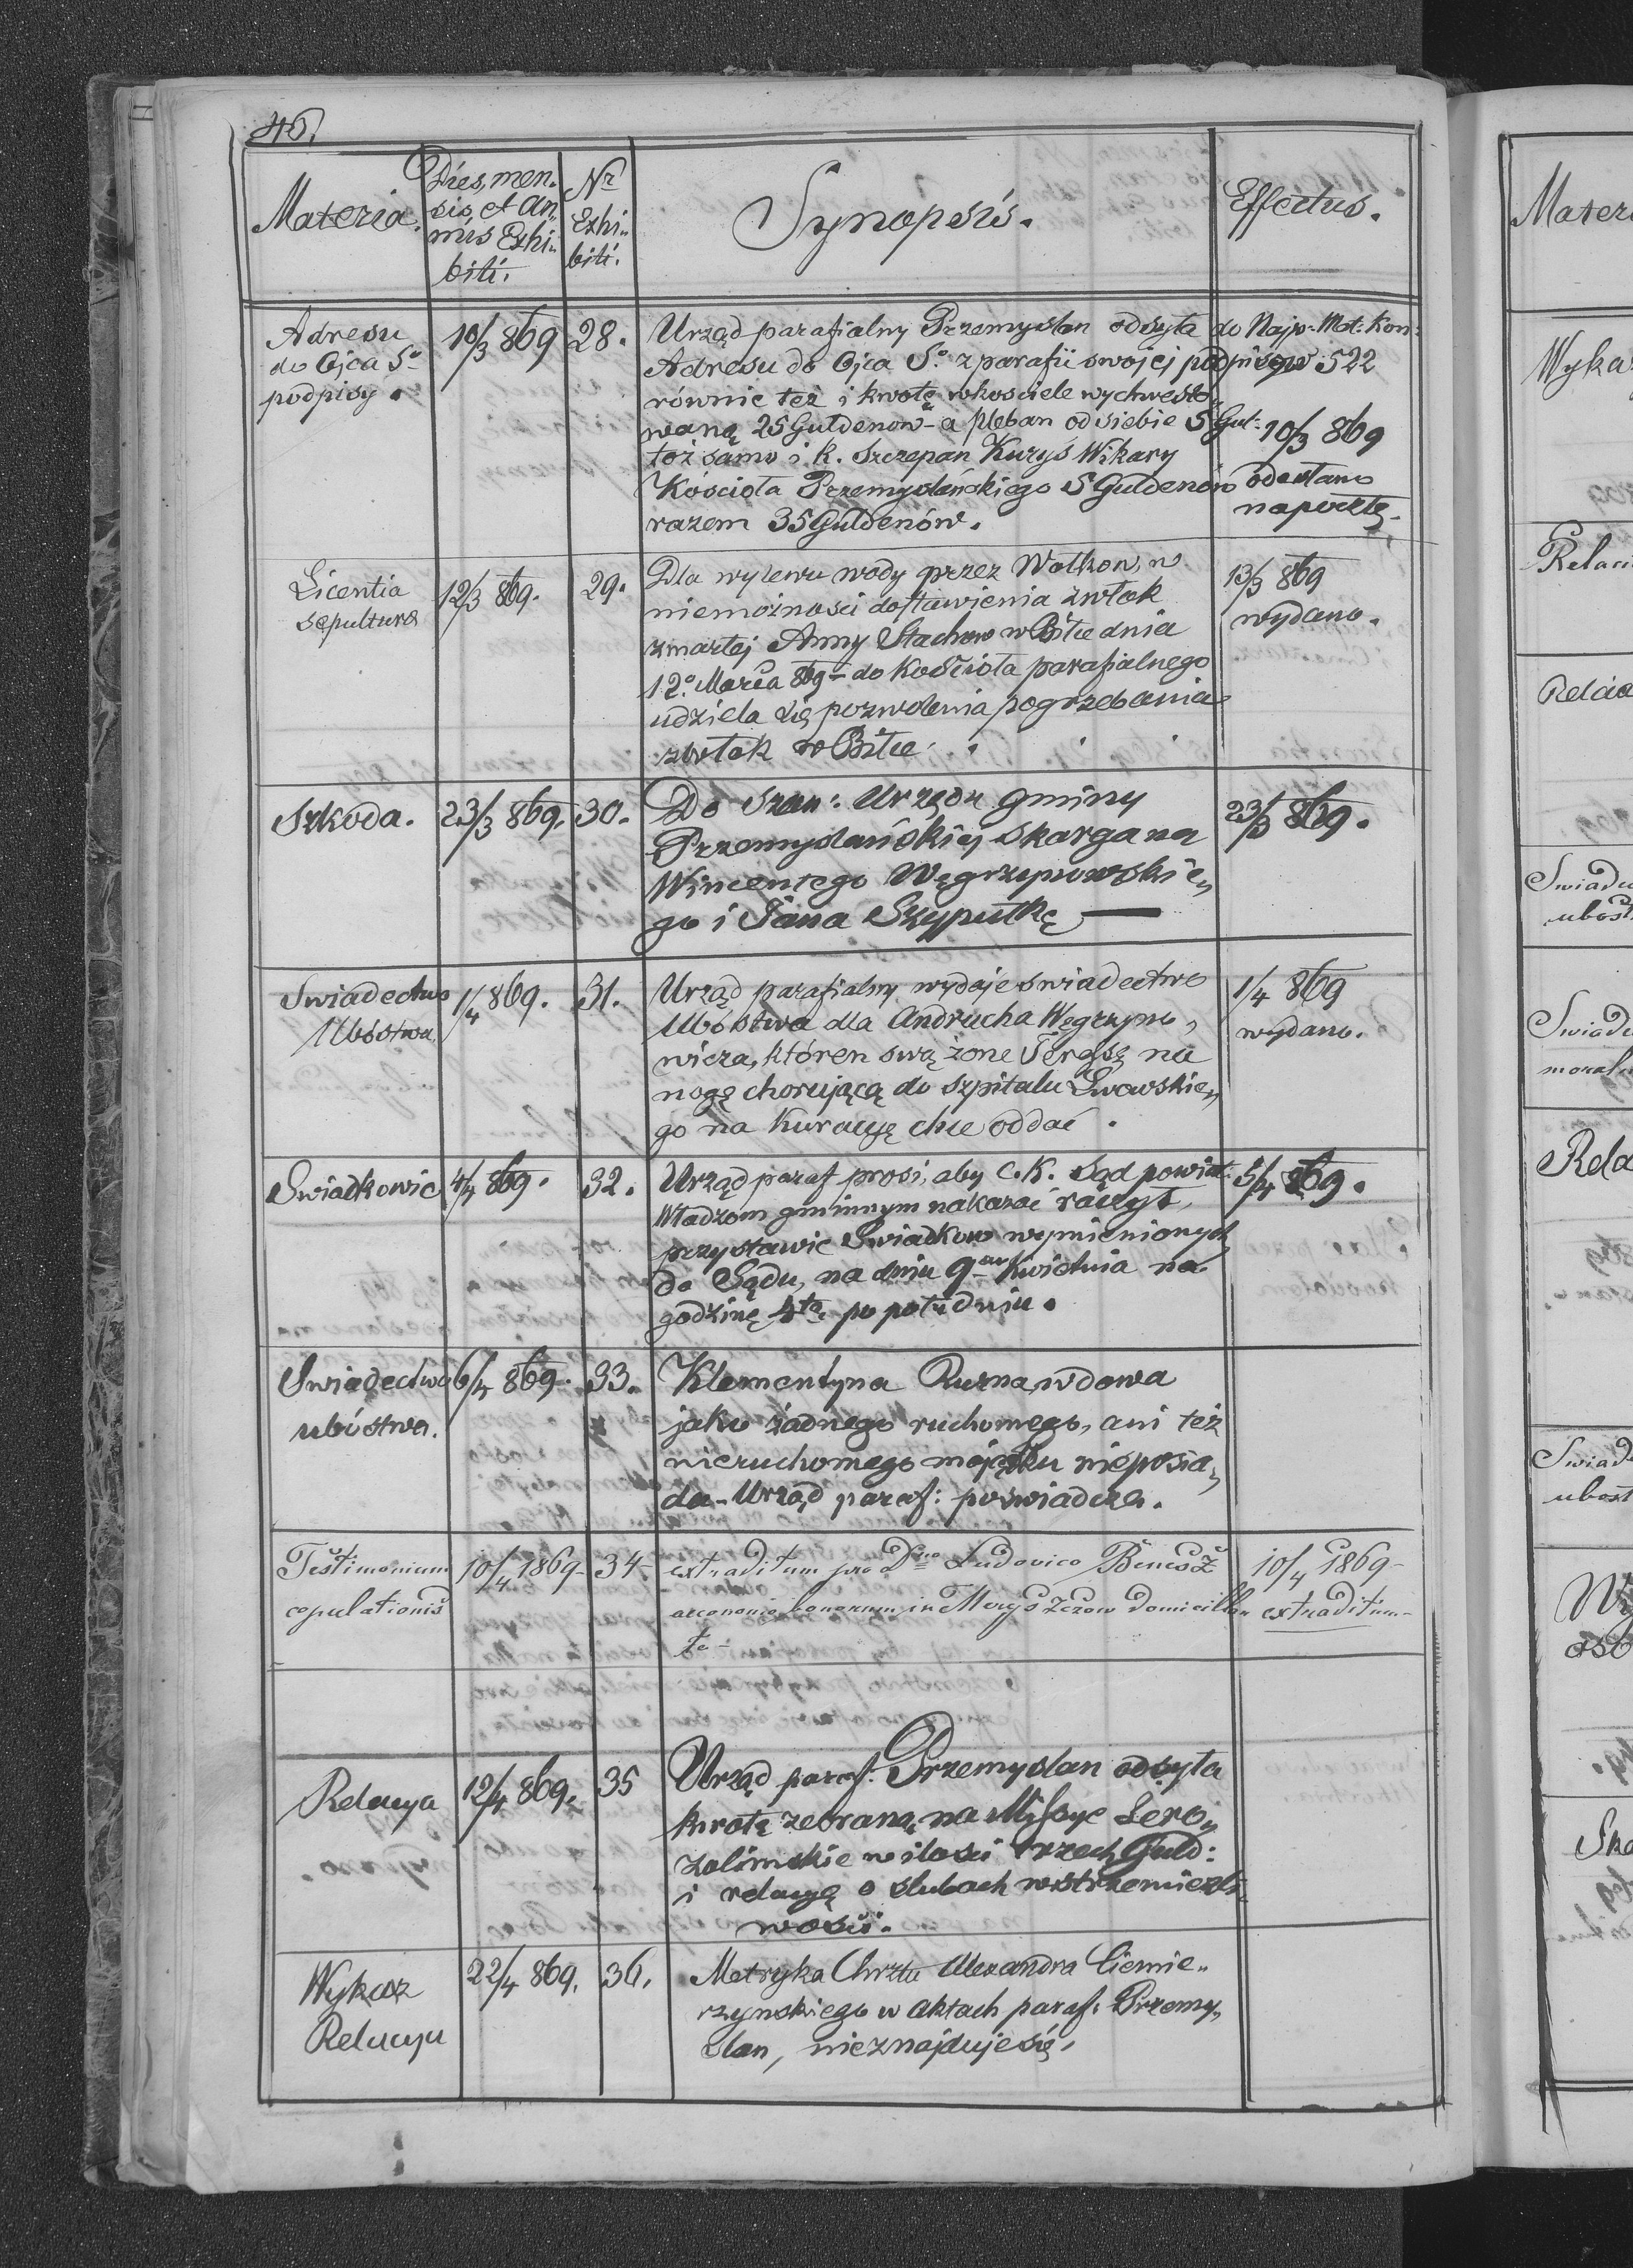 46.
Materia.
Dies, men-
sis, et An-
nus Exhi-
biti.
Nr
Exhi-
biti.
Synopsis.
Effectus.
Adresu
do Ojca So
podpisy.
10/3 869
28.
Urząd parafialny Przemyslan odsyła do Najp: Met: Kon:
Adresu do Ojca So. z parafii swojej podpisów 522
równie też i kwotę wkościele
waną 25 Guldenow - a pleban od siebie 5 Gul:
toż samo i k. Szczepan Kuryś Wikary
Kościoła Przemyslańskiego 5 Guldenów
razem 35 Guldenów.
10/3 869
odesłano
na pocztę.
Licentia
sepulturæ
12/3 869.
29.
Dla wylewu wody przez Wołkow, w
niemożności dostawienia zwłok
zmarłej Anny Stachow w Bitce dnia
12o. Marca 869 - do Kościoła parafialnego
udziela się pozwolenia pogrzebania
zwłok w Bitce.
13/3 869
wydano.
Szkoda.
23/3 869.
30.
Do Szan: Urzędu gminy
Przemyslańskiej skarga na
Wincentego Węgrzynowskie„
go i Jana Szyputkę —
23/3 869.
Swiadectwo
Ubóstwa.
1/4 869.
31.
Urząd parafialny wydaje swiadectwo
Ubóstwa dla Andrucha Węgrzyno„
wicza, któren swą żone Teressę na
nogę chorującą do szpitalu Lwowskie„
go na kuracyę chce oddać.
1/4 869
wydano.
Swiadkowie
4/4 869.
32.
Urząd paraf prosi, aby C. K. Sąd powiat:
Władzom gminnym nakazać raczył,
przystawic Swiadkow wymienionych
do Sądu, na dniu 9 Kwietnia na
godzinę 4tą po południu.
5/4 869.
Swiadectwo
ubóstwa.
6/4 869.
33.
Klementyna Rurna, wdowa
jako żadnego ruchomego, ani też
nieruchomego majątku nieposia„
da - Urząd paraf: poświadcza.
Testimonium
copulationis
10/4 1869 -
34 -
extraditum pro Dno Ludovico Benesz
oeconomo bonorum in domicilla„
to -
10/4 1869 -
extraditum -
Relacya
12/4 869.
35
Urząd paraf: Przemyslan odsyła
kwotę zebraną na Missye Jero„
zolimskie w ilosci trzech Guld:
i relacyę o slubach wstrzemięźli„
wości.
Wykaz
Relacya
22/4 869.
36.
Metryka Chrztu Alexandra Ciemie„
rzynskiego w aktach paraf. Przemy„
slan, nieznajduje się.